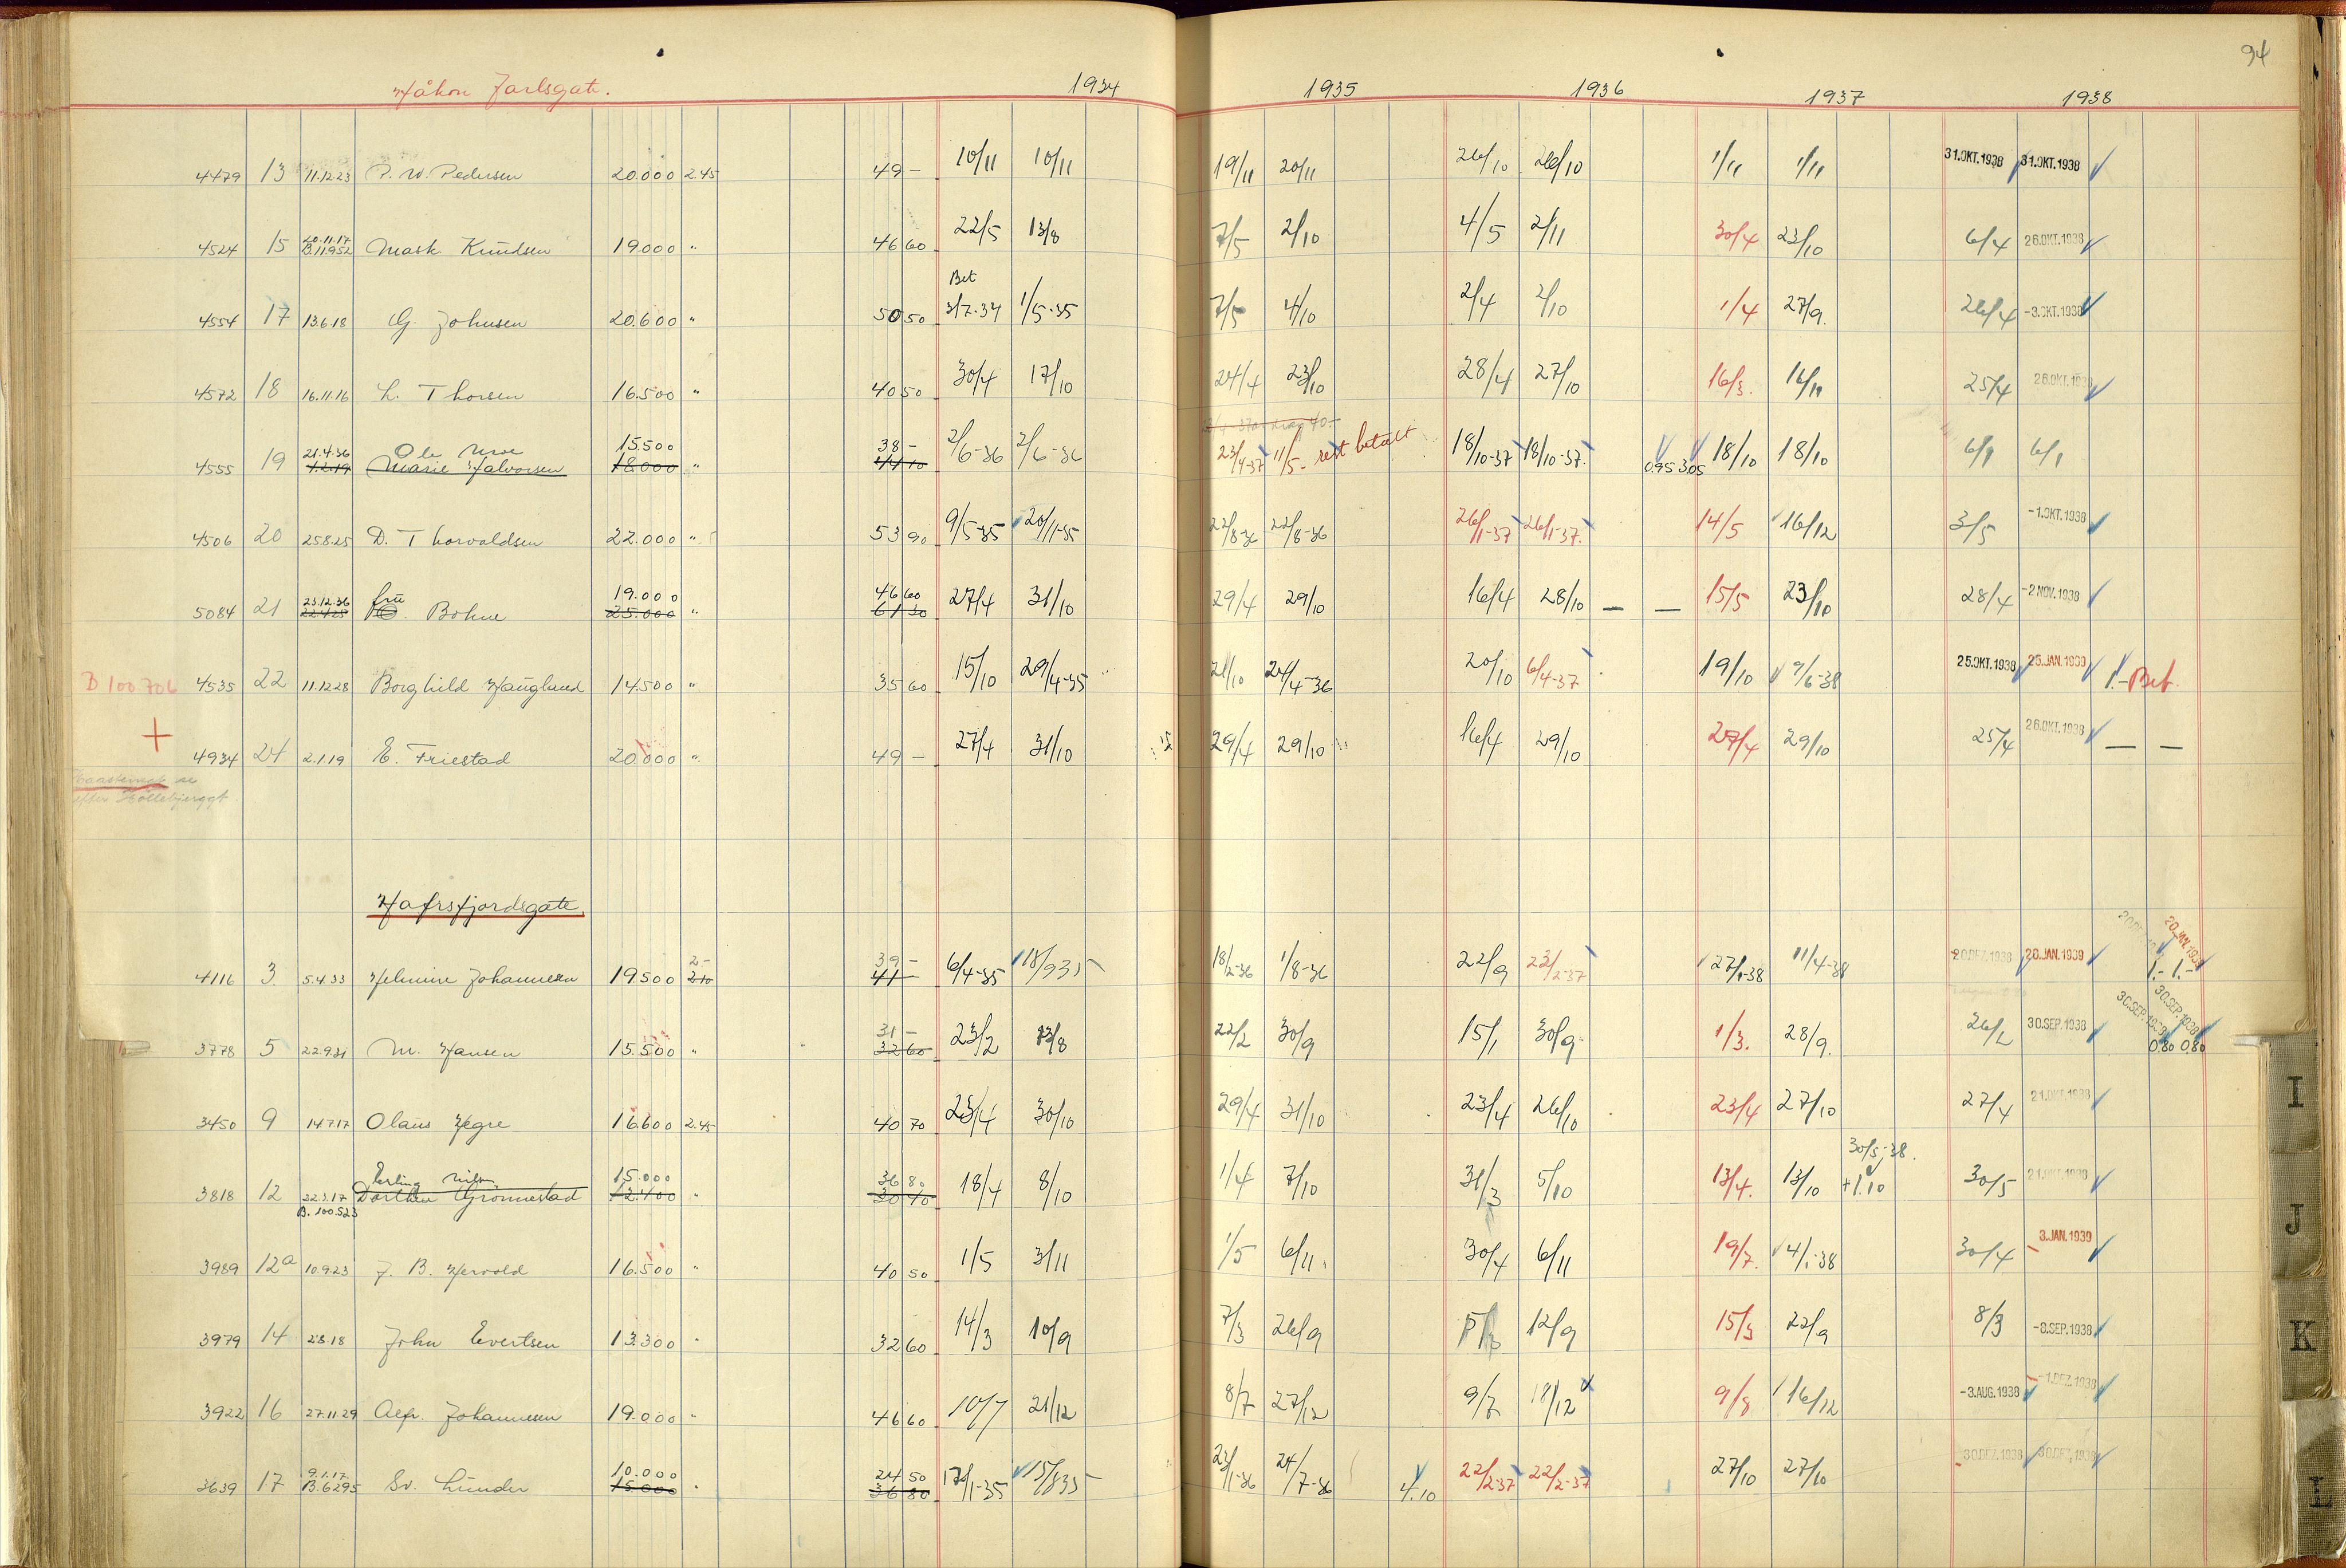 94
Håkon Jarlsgate. 1934 1935 1936 1937 1938
4479 13 11.12.23 P. W. Pedersen 20.000 2.45 49 - 10/11 10/11 19/11 20/11 26/10 26/10 1/11 1/11 31.OKT.1938 31.OKT.1938
20.11.17
4524 15 B.11952 Mask. Knudsen 19.000 " 46 60 22/5 13/8 7/5 2/10 4/5 2/11 30/4 23/10 6/4 26.OKT.1938
Bet
4554 17 13.6.18 G. Johnsen 20.600 " 50 50 3/7-34 1/5-35 7/5 4/10 2/4 2/10 1/4 27/9. 26/4 -3.OKT.1938
4572 18 16.11.16 L. Thorsen 16.500 " 40 50 30/4 17/10 24/4 23/10 28/4 27/10 16/3. 16/11 25/4 26.OKT.1938
21.4.36 Ole Moe 15.500 38 -
4555 19 1.2.19 Marie Halvorsen 18.000 " 44 10 2/6-36 2/6-36 23/4-37 11/5- rest betalt 18/10-37 18/10-37. 0.95 3.05 18/10 18/10 6/1 6/1
4506 20 25.8.25 D. Thorvaldsen 22.000 " 53 90 9/5-35 20/11-35 22/8-36 22/8-36 26/1-37 26/1-37. 14/5 16/12 3/5 -1.OKT.1938
23.12.36 fru 19.000 46 60
5084 21 22.4.25 Bohne 25.000 " 61 30 27/4 31/10 29/4 29/10 16/4 28/10 — — 15/5 23/10 28/4 -2 NOV.1938
B 100706 4535 22 11.12.28 Borghild Haugland 14.500 " 35 60 15/10 29/4-35 21/10 24/4-36 20/10 6/4-37 19/10 9/6-38 25.OKT.1938 25.JAN.1939 1.- Bet.
+
4934 24 2.1.19 E. Friestad 20.000 " 49 - 27/4 31/10 29/4 29/10 16/4 29/10 27/4 29/10 25/4 26.OKT.1938 — —
Hafrsfjordsgate.
2- 39 -
4116 3 5.4.33 Helmine Johannesen 19.500 2.10 41 - 6/4-35 18/9 35 18/2-36 1/8-36 22/9 23/2-37 27/1-38 11/4-38 20.DEZ.1938 20.JAN.1939 20.JAN.1939 1.- 1.-
31 -
3778 5 22.9.31 M. Hansen 15.500 " 32 60 23/2 13/8 22/2 30/9 15/1 30/9 1/3. 28/9. 26/2 30.SEP.1938 30.SEP.1938 30.SEP.1938 0.80 0.80
3450 9 14.7.17 Olaus Hegre 16.600 2.45 40 70 23/4 30/10 29/4 31/10 23/4 26/10 23/4 27/10 27/4 21.OKT.1938
30/5-38.
Erling Nilsen 15.000 36 80
3818 12 22.3.17 Dorthea Grønnestad 12.400 " 30 40 18/4 8/10 1/4 7/10 31/3 5/10 13/4. 13/10 +1.10 30/5 21.OKT.1938
B. 100.523
3989 12a 10.9.23 J. B. Hervold 16.500 " 40 50 1/5 3/11 1/5 6/11. 30/4 6/11 19/7. 4/1-38 30/4 3.JAN.1939
3979 14 2.8.18 John Evertsen 13.300 " 32 60 14/3 10/9 7/3 26/9 12/9 15/3 22/9 8/3 -8.SEP.1938
3922 16 27.11.29 Alfr. Johannesen 19.000 " 46 60 10/7 21/12 8/7 27/12 9/7 18/12 9/8 16/12 -3.AUG.1938 -1.DEZ.1938
9.1.17 10.000 24 50
3639 17 B.6295 Sv. Lunder 15.000 " 36 80 17/1-35 15/8 35 23/1-36 24/7-36 4.10 22/2-37 22/2-37 27/10 27/10 30.DEZ.1938 30.DEZ.1938
I
J
K
L